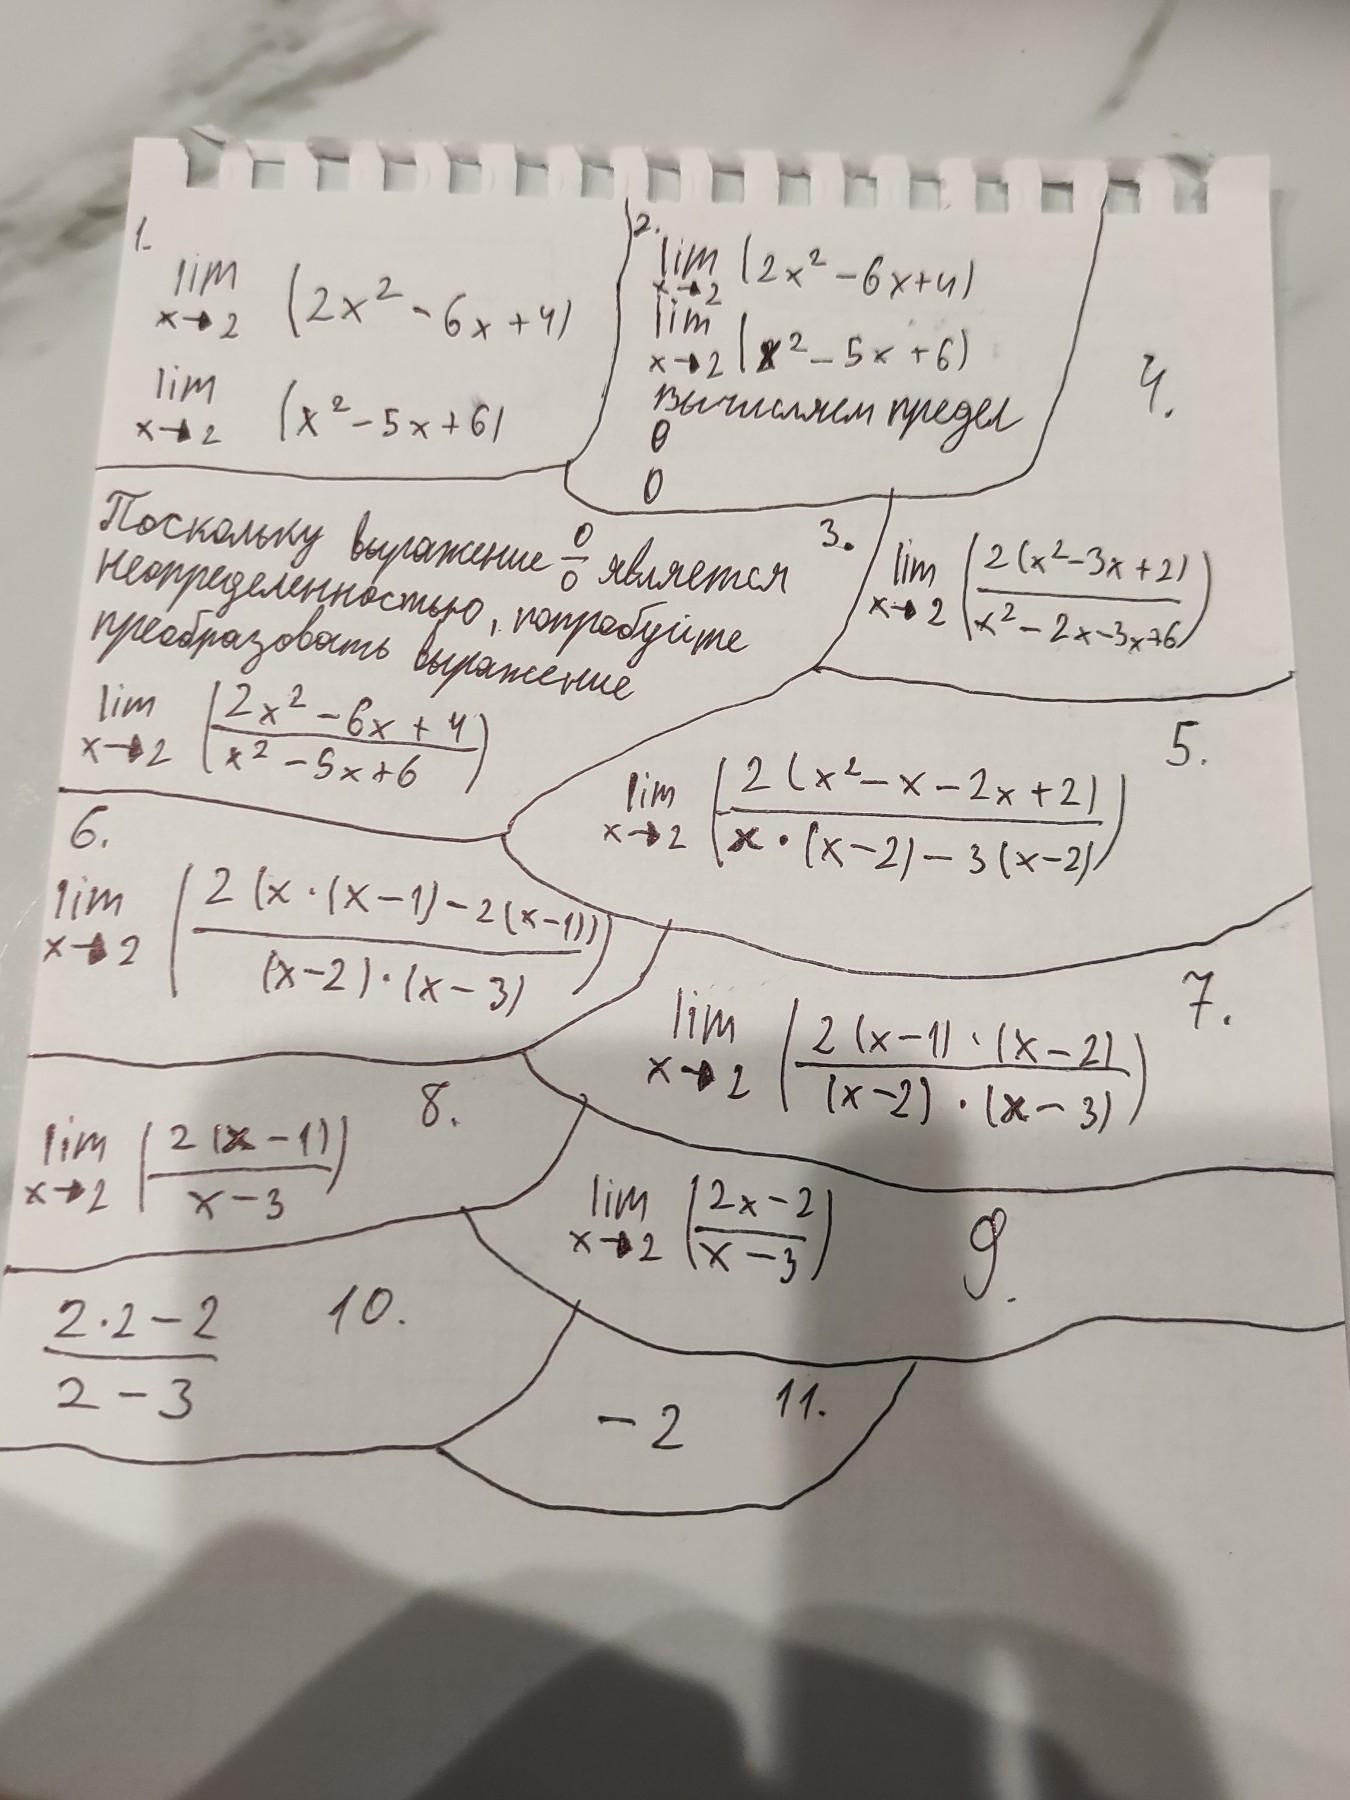 1.
lim x→2 (2x² - 6x + 4)
lim x→2 (x² - 5x + 6)
2.
lim x→2 (2x² - 6x + 4)
lim x→2 (x² - 5x + 6)
вычисляем предел
0
0
3.
Поскольку выражение 0/0 является
неопределенностью, попробуйте
преобразовать выражение
lim x→2 ((2x² - 6x + 4)/(x² - 5x + 6))
4.
lim x→2 (2(x² - 3x + 2)/(x² - 2x - 3x + 6))
5.
lim x→2 (2(x² - x - 2x + 2)/(x·(x-2) - 3(x-2)))
6.
lim x→2 (2(x·(x-1) - 2(x-1))/((x-2)·(x-3)))
7.
lim x→2 (2(x-1)·(x-2)/((x-2)·(x-3)))
8.
lim x→2 (2(x-1)/(x-3))
9.
lim x→2 ((2x-2)/(x-3))
10.
(2·2-2)/(2-3)
11.
-2